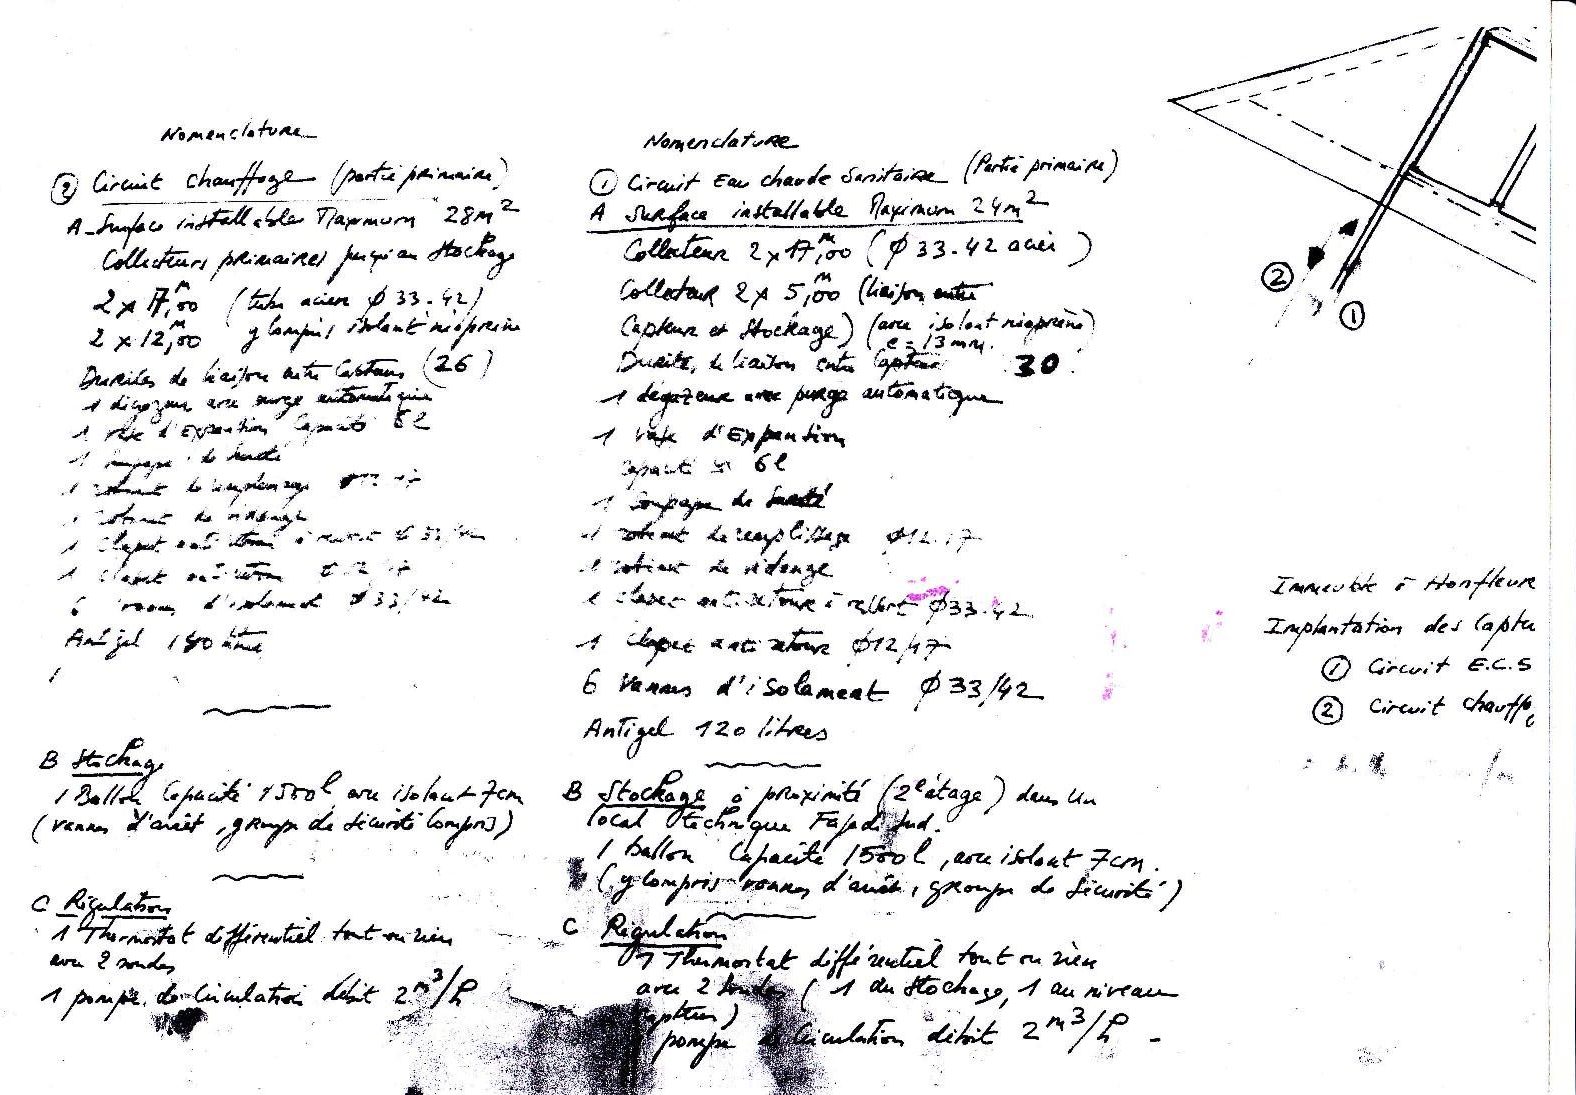 Nomenclature
② Circuit chauffage (partie primaire)
A - Surface installable Maximum 28m²
Collecteurs primaires jusqu'au Stockage
2 x 17,00 m (tube acier Ø 33.42)
2 x 12,00 m y compris isolant néoprène
Durites de liaison entre Capteurs (26)
1 dégazeur avec purge automatique
1 vase d'Expansion Capacité 6l
1 de
1 de remplissage
1 de vidange
1 Clapet anti retour à Ø 33/42
1 Clapet anti retour
6 vannes d'isolement Ø 33/42
Antigel 180 litres
B Stockage
1 Ballon Capacité 1500l avec isolant 7cm
(vannes d'arrêt, groupe de Sécurité Compris)
C Régulation
1 Thermostat différentiel tout ou rien
avec 2 sondes
1 pompe de Circulation débit 2m³/h
Nomenclature
① Circuit Eau chaude Sanitaire (Partie primaire)
A Surface installable Maximum 24m²
Collecteur 2 x 17,00 m (Ø 33.42 acier)
Collecteur 2 x 5,00 m (liaison entre
Capteur et Stockage) (avec isolant néoprène)
e = 13 mm.
Durites de liaison entre Capteur 30.
1 dégazeur avec purge automatique
1 vase d'Expansion
Capacité 6l
1 Soupape de Sureté
1 robinet de remplissage Ø12.17
1 robinet de vidange
1 clapet anti retour à ressort Ø33.42
1 Clapet anti retour Ø12/17
6 Vannes d'isolament Ø33/42
Antigel 120 litres
B Stockage à proximité (2e étage) dans un
local technique Façade Sud.
1 Ballon Capacité 1500l, avec isolant 7cm.
(y compris vannes d'arrêt, groupe de Sécurité)
C Régulation
1 Thermostat différentiel tout ou rien
avec 2 Sondes (1 du Stockage, 1 au niveau
Capteur)
pompe de Circulation débit 2 m³/h -
②
①
Immeuble à Honfleur
Implantation des Captu
① Circuit E.C.S
② Circuit chauffa